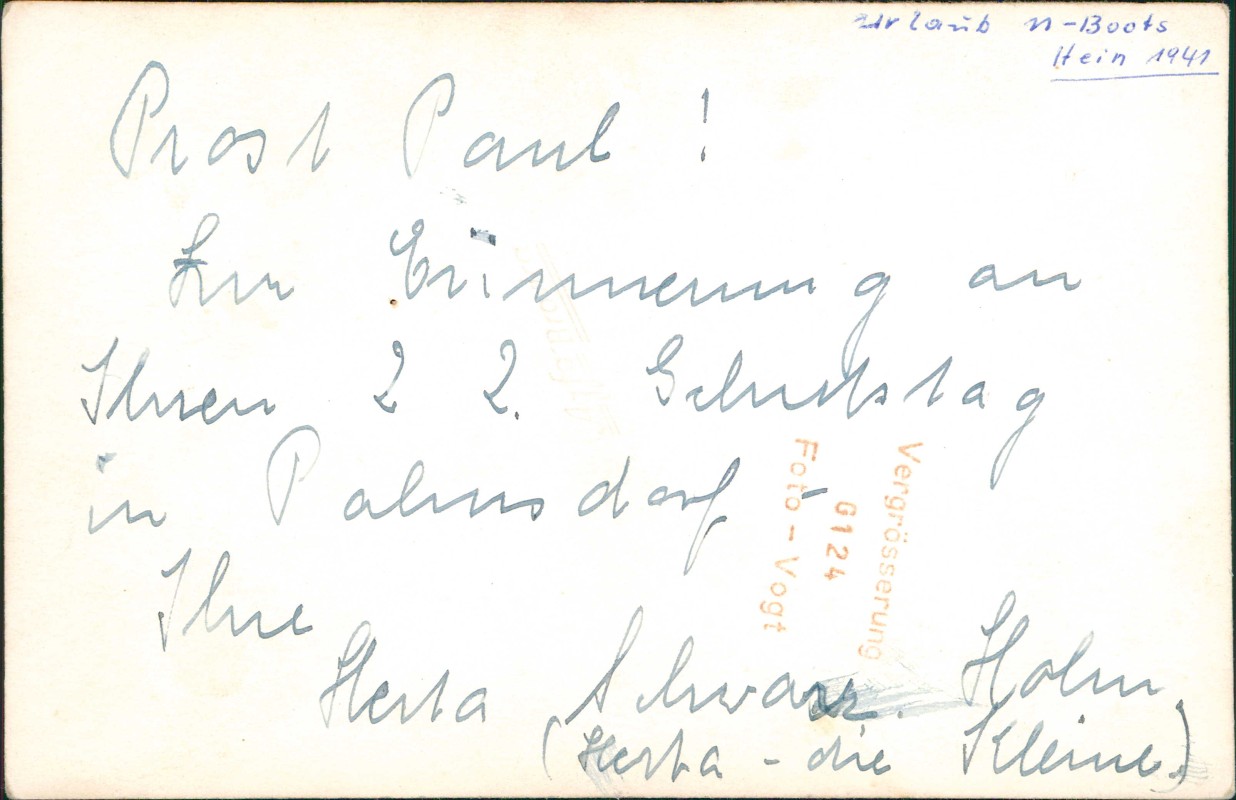 Urlaub U-Boots
Hein 1941
Prost Paul!
Zur Erinnerung an
Ihren 22. Geburtstag
in Palmsdorf -
Ihre
Herta Schwarz. Holm.
(Herta - die Kleine.)
Vergrösserung
G124
Foto-Vogt